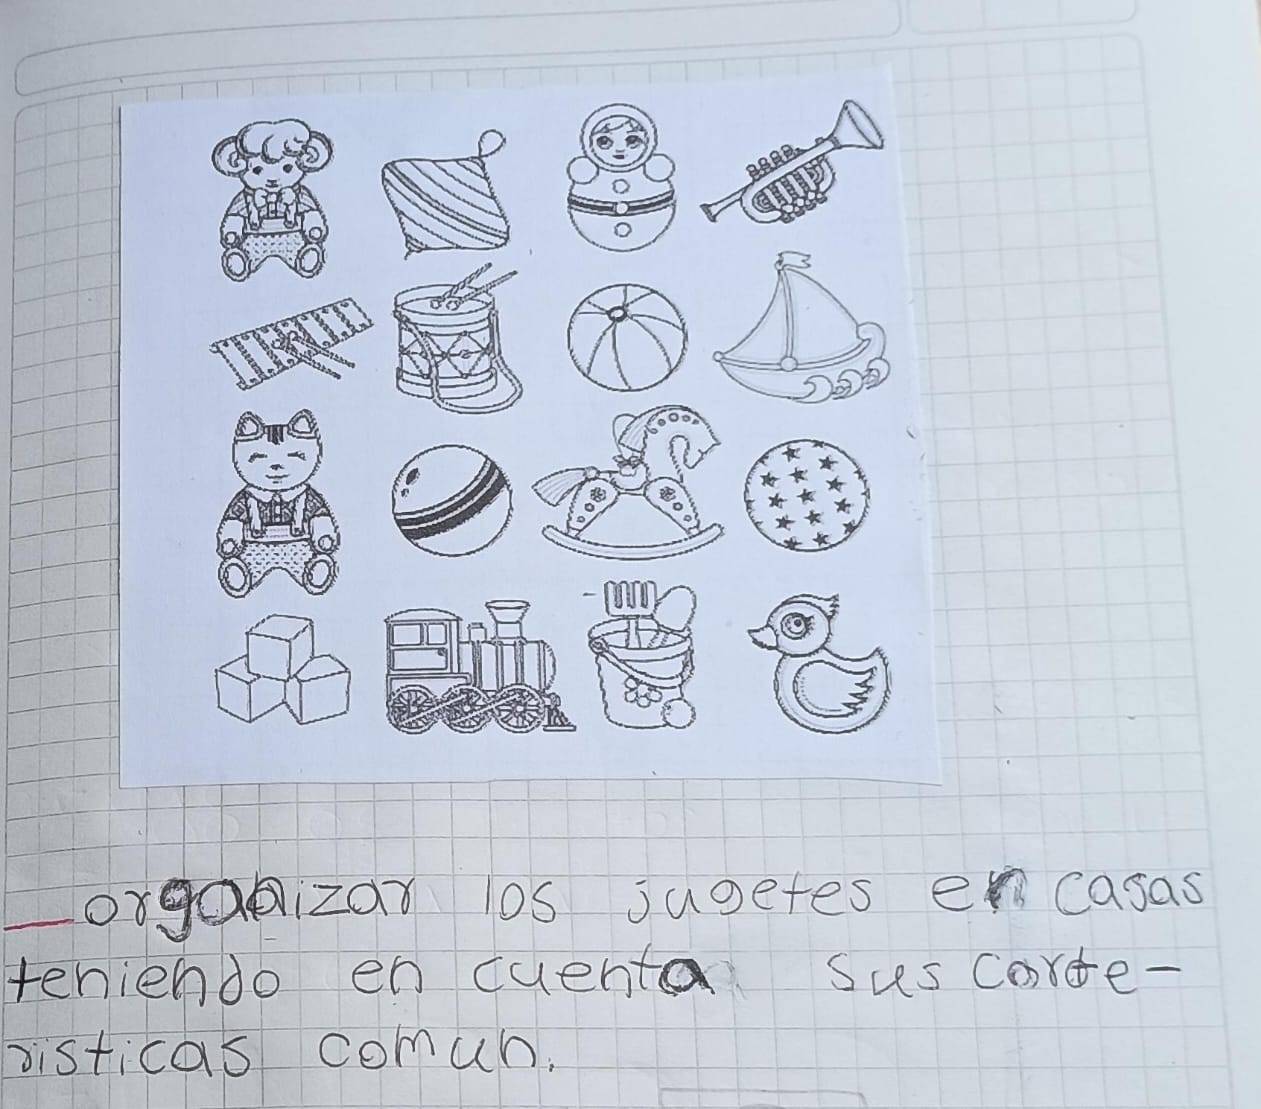 organizar los jugetes en casas
teniendo en cuenta sus carte-
risticas comun.